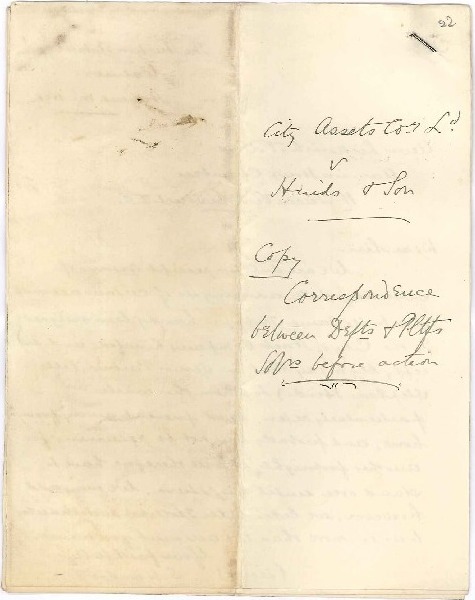 22
City Assets Coy Ld
v
Hinds & Son
Copy
Correspondence
between Defts & Pltfs
Solrs before action